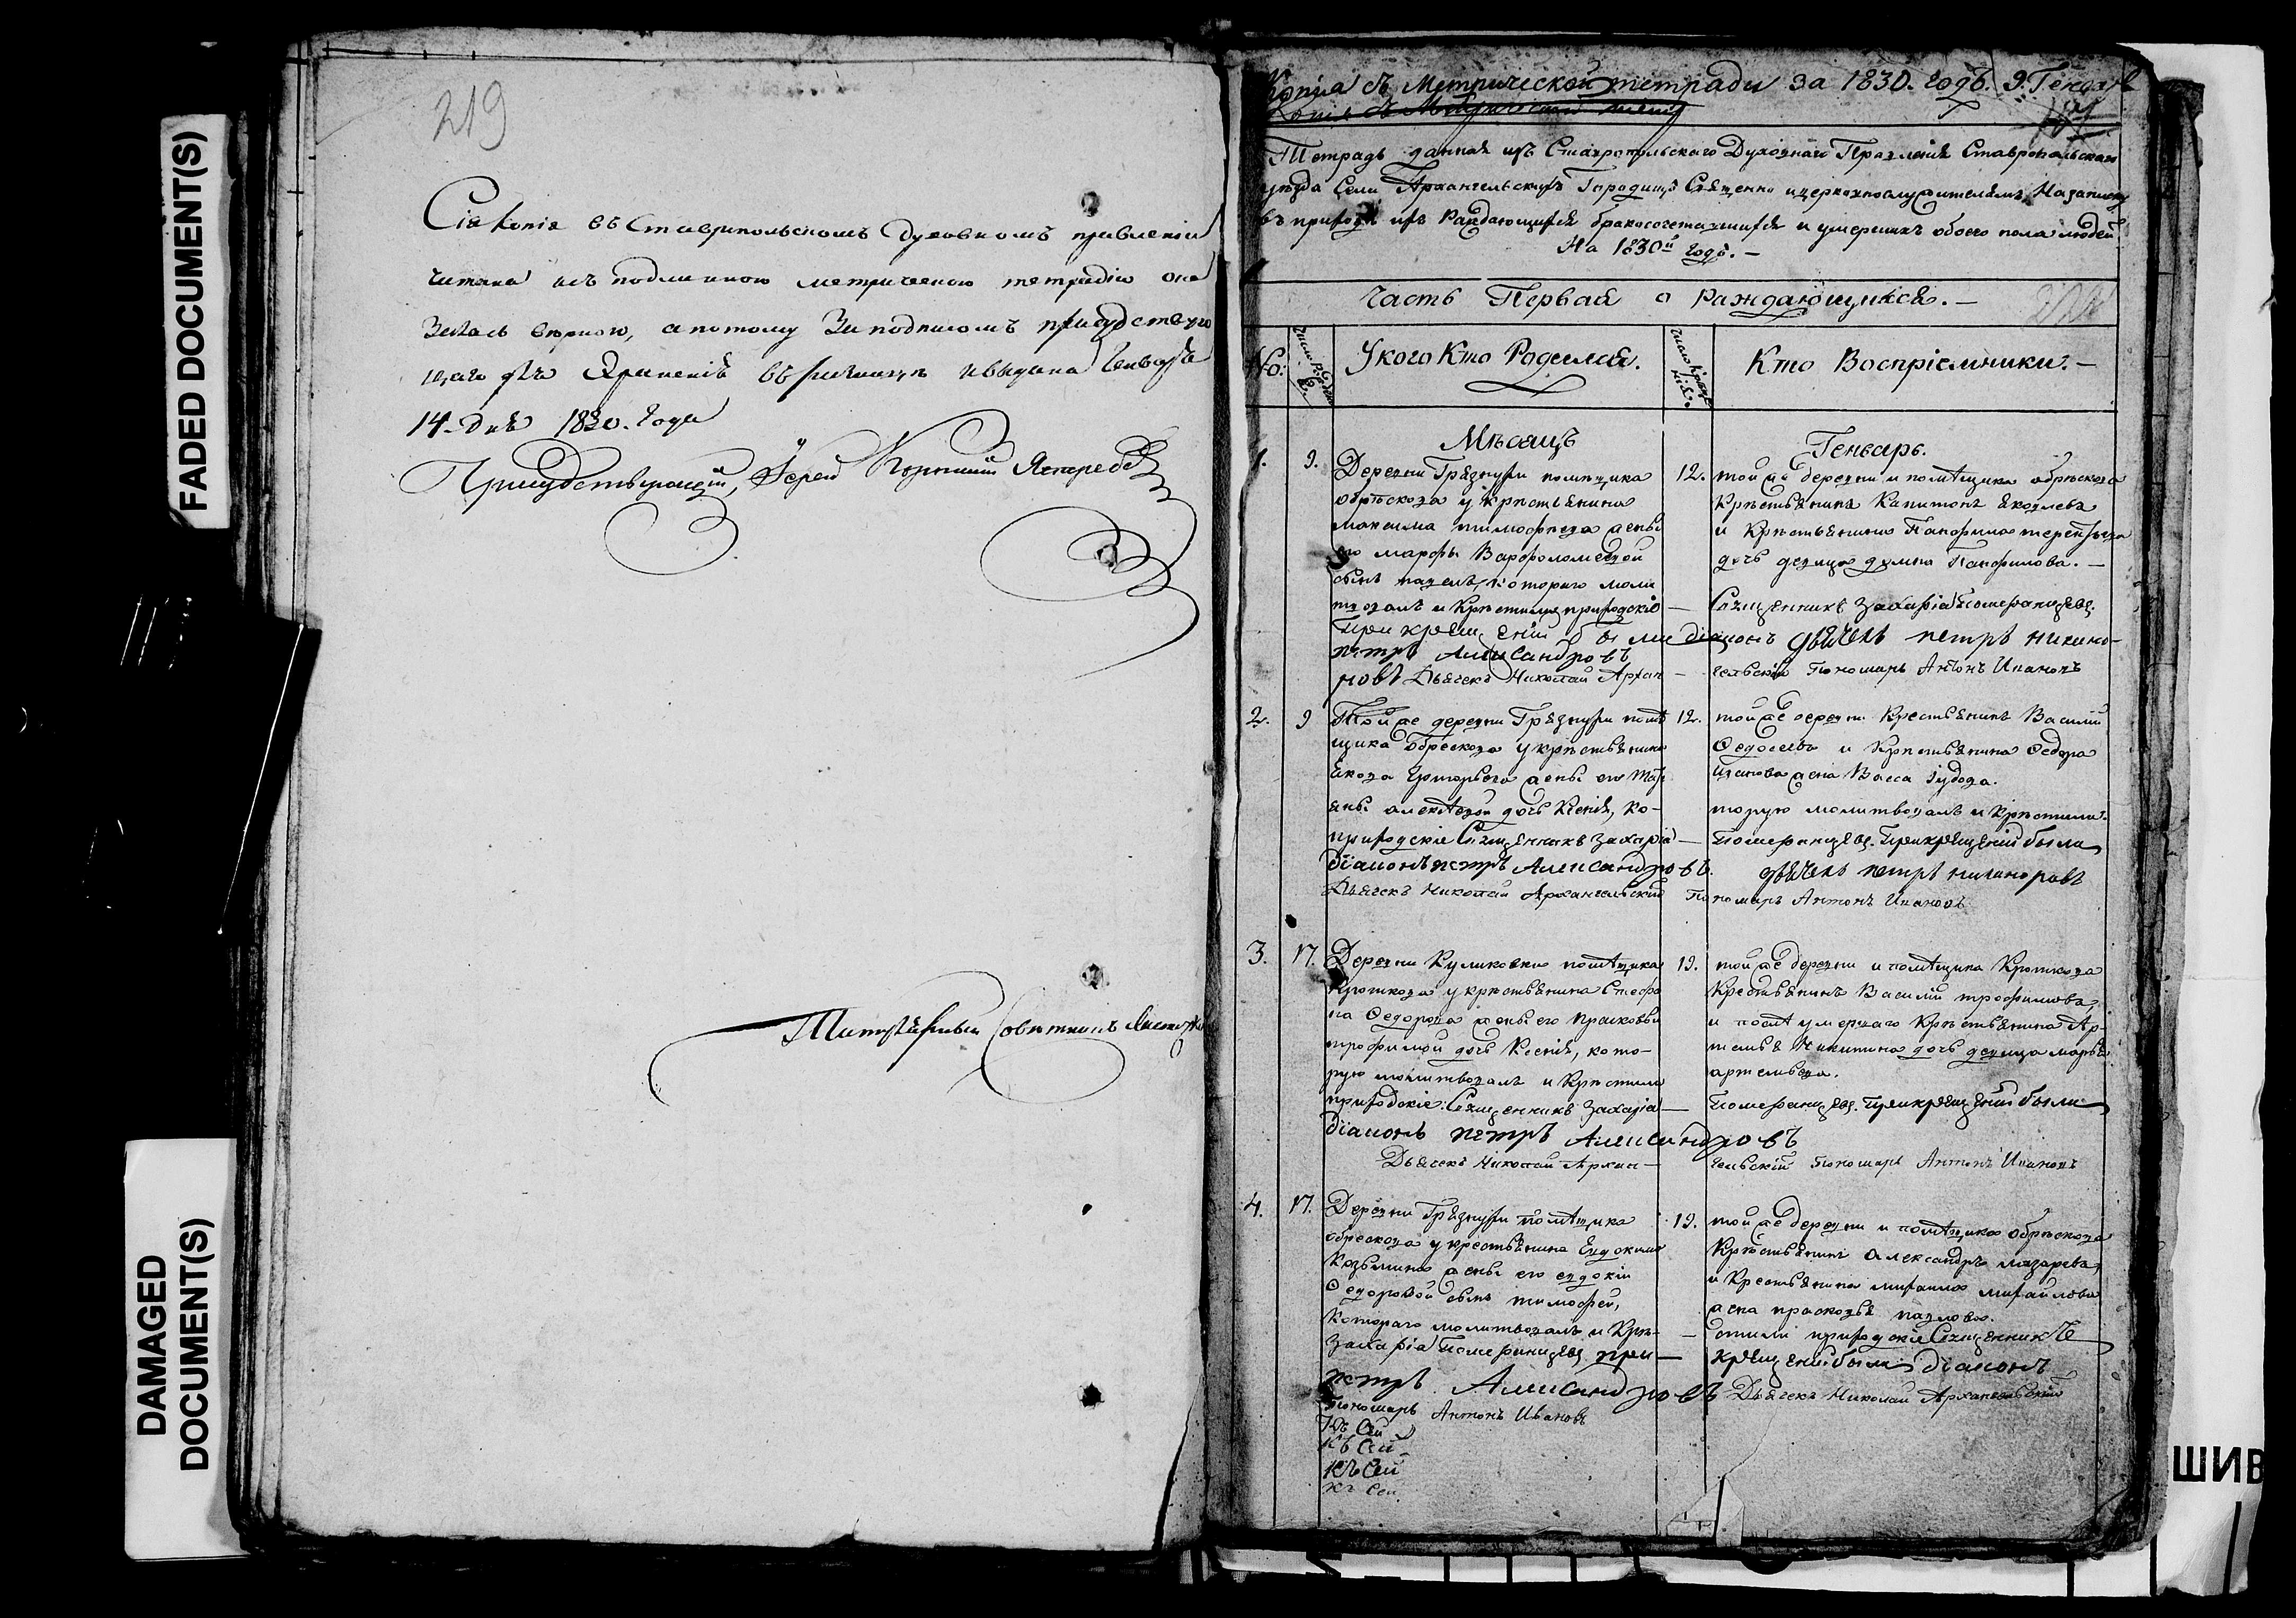 FADED DOCUMENT(S)
DAMAGED
DOCUMENT(S)
219
Сія копія въ Ставропольскомъ духовномъ правленіи
читана и съ подлинною метрическою тетрадью ока
залась вѣрною, а потому за подписомъ присудствую
щаго для храненія въ ризницѣ и выдана Генваря
14. Дня 1830. Года
Присудствующій, Іерей
Титулярный Совѣтникъ
Копія съ Метрической тетради за 1830. годъ. 9. Генварь
Копія съ Метрической
Тетрадь данная изъ Ставропольскаго Духовнаго Правленія Ставропольскаго
уѣзда Села Архангельскихъ Городищъ Священно и церковнослужителямъ На записку
въ приходѣ ихъ Раждающихся бракосочетавшихся и умершихъ обоего пола людей
На 1830й годъ. –
Часть Первая о Раждающихся. –
No:
У кого Кто Родился.
Кто Воспріемники. –
Мѣсяцъ
Генварь.
1. 9. Деревни Грязнухи помѣщика
Обрѣскова у крѣстьянина
максима тимофѣева жены
его марфы Варфоломеевой
сынъ павелъ, котораго моли
твовалъ и Крѣстилъ приходскіе
При крещеніи были діаконъ
петръ Александровъ
новъ Дьячекъ Николай Архан
12. той же деревни и помѣщика обрѣскова
Крѣстьянинъ Капитонъ Яковлевъ
и Крѣстьянина Панфила терентьева
дочь девица домна Панфилова. –
Священникъ Захарія Померанцевъ.
дьячекъ петръ никано-
гельскій Пономарь Антонъ Ивановъ
2. 9 Той же деревни Грязнухи помѣ
щика Обрескова у крѣстьянина
Якова Григорьева жены его Тать
яны алексѣевой дочь Ксенія, ко-
приходскіе Священникъ Захарія
діаконъ петръ Александровъ.
Дьячекъ Николай Архангельскій
12. той же деревни Крестьянинъ Василій
Федосеевъ и Крѣстьянина Федора
Иванова жена Васса
торую молитвовалъ и Крѣстили
Померанцевъ. При крещеніи были
дьячекъ петръ никаноровъ
Пономарь Антонъ Ивановъ
3. 17. Деревни Куликовки помѣщика
Кроткова у крѣстьянина Стефа
на Федорова жены его прасковьи
трофимой дочь Ксенія, кото-
рую молитвовалъ и Крѣстили
приходскіе: Священникъ Захарія
діаконъ петръ Александровъ
Дьячекъ Николай Архан-
19. той же деревни и помѣщика Кроткова
Крестьянинъ Василій трофимовъ,
и помѣ умершаго Крѣстьянина Ар-
темья Никитина дочь девица марья
артемьева.
Померанцевъ. При крещеніи были
гельскій Пономарь Антонъ Ивановъ
4. 17. Деревни Грязнухи помѣщика
обрескова у крестьянина Евдокима
Козьмина жены его евдокіи
Федоровой сынъ тимофей,
Котораго молитвовалъ и Крѣ-
Захарія Померанцевъ при
петръ Александровъ
Пономарь Антонъ Ивановъ
Къ Сей
Къ Сей
Къ Сей
Къ Сей
19. той же деревни и помѣщика обрѣскова
Крѣстьянинъ Александръ лазаревъ,
и Крестьянина михаила михайлова
жена прасковья павлова.
стили приходскіе Священникъ
крещеніи были діаконъ
Дьячекъ Николай Архангельскій
ШИВ